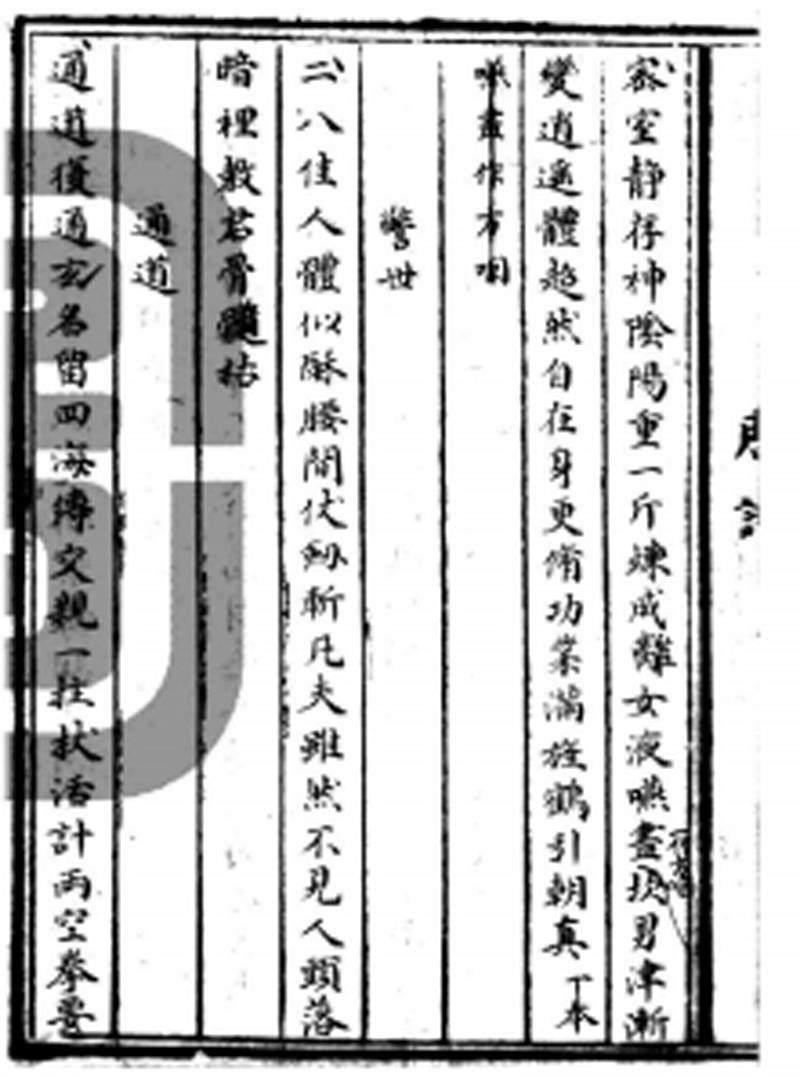 密室静存神陰陽重一斤煉成離女液嚥盡坎男津漸
變逍遥體超然自在身更脩功業滿旌鶴引朝真一本
嚥盡作方咽
警世
二八佳人體似酥腰間伏劔斬凡夫雖然不見人頭落
暗裡教君骨髓枯
通道
通道復通玄名留四海傳交親一拄杖活計兩空拳要